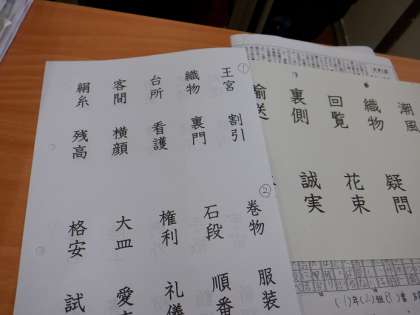 ①
王宮 割引
織物 裏門
台所 看護
客間 横顔
絹糸 残高
②
巻物 服装
石段 順番
権利 礼儀
大皿 愛
格安 試
潮風
織物 疑問
回覧 花束
裏側 誠実
輸送